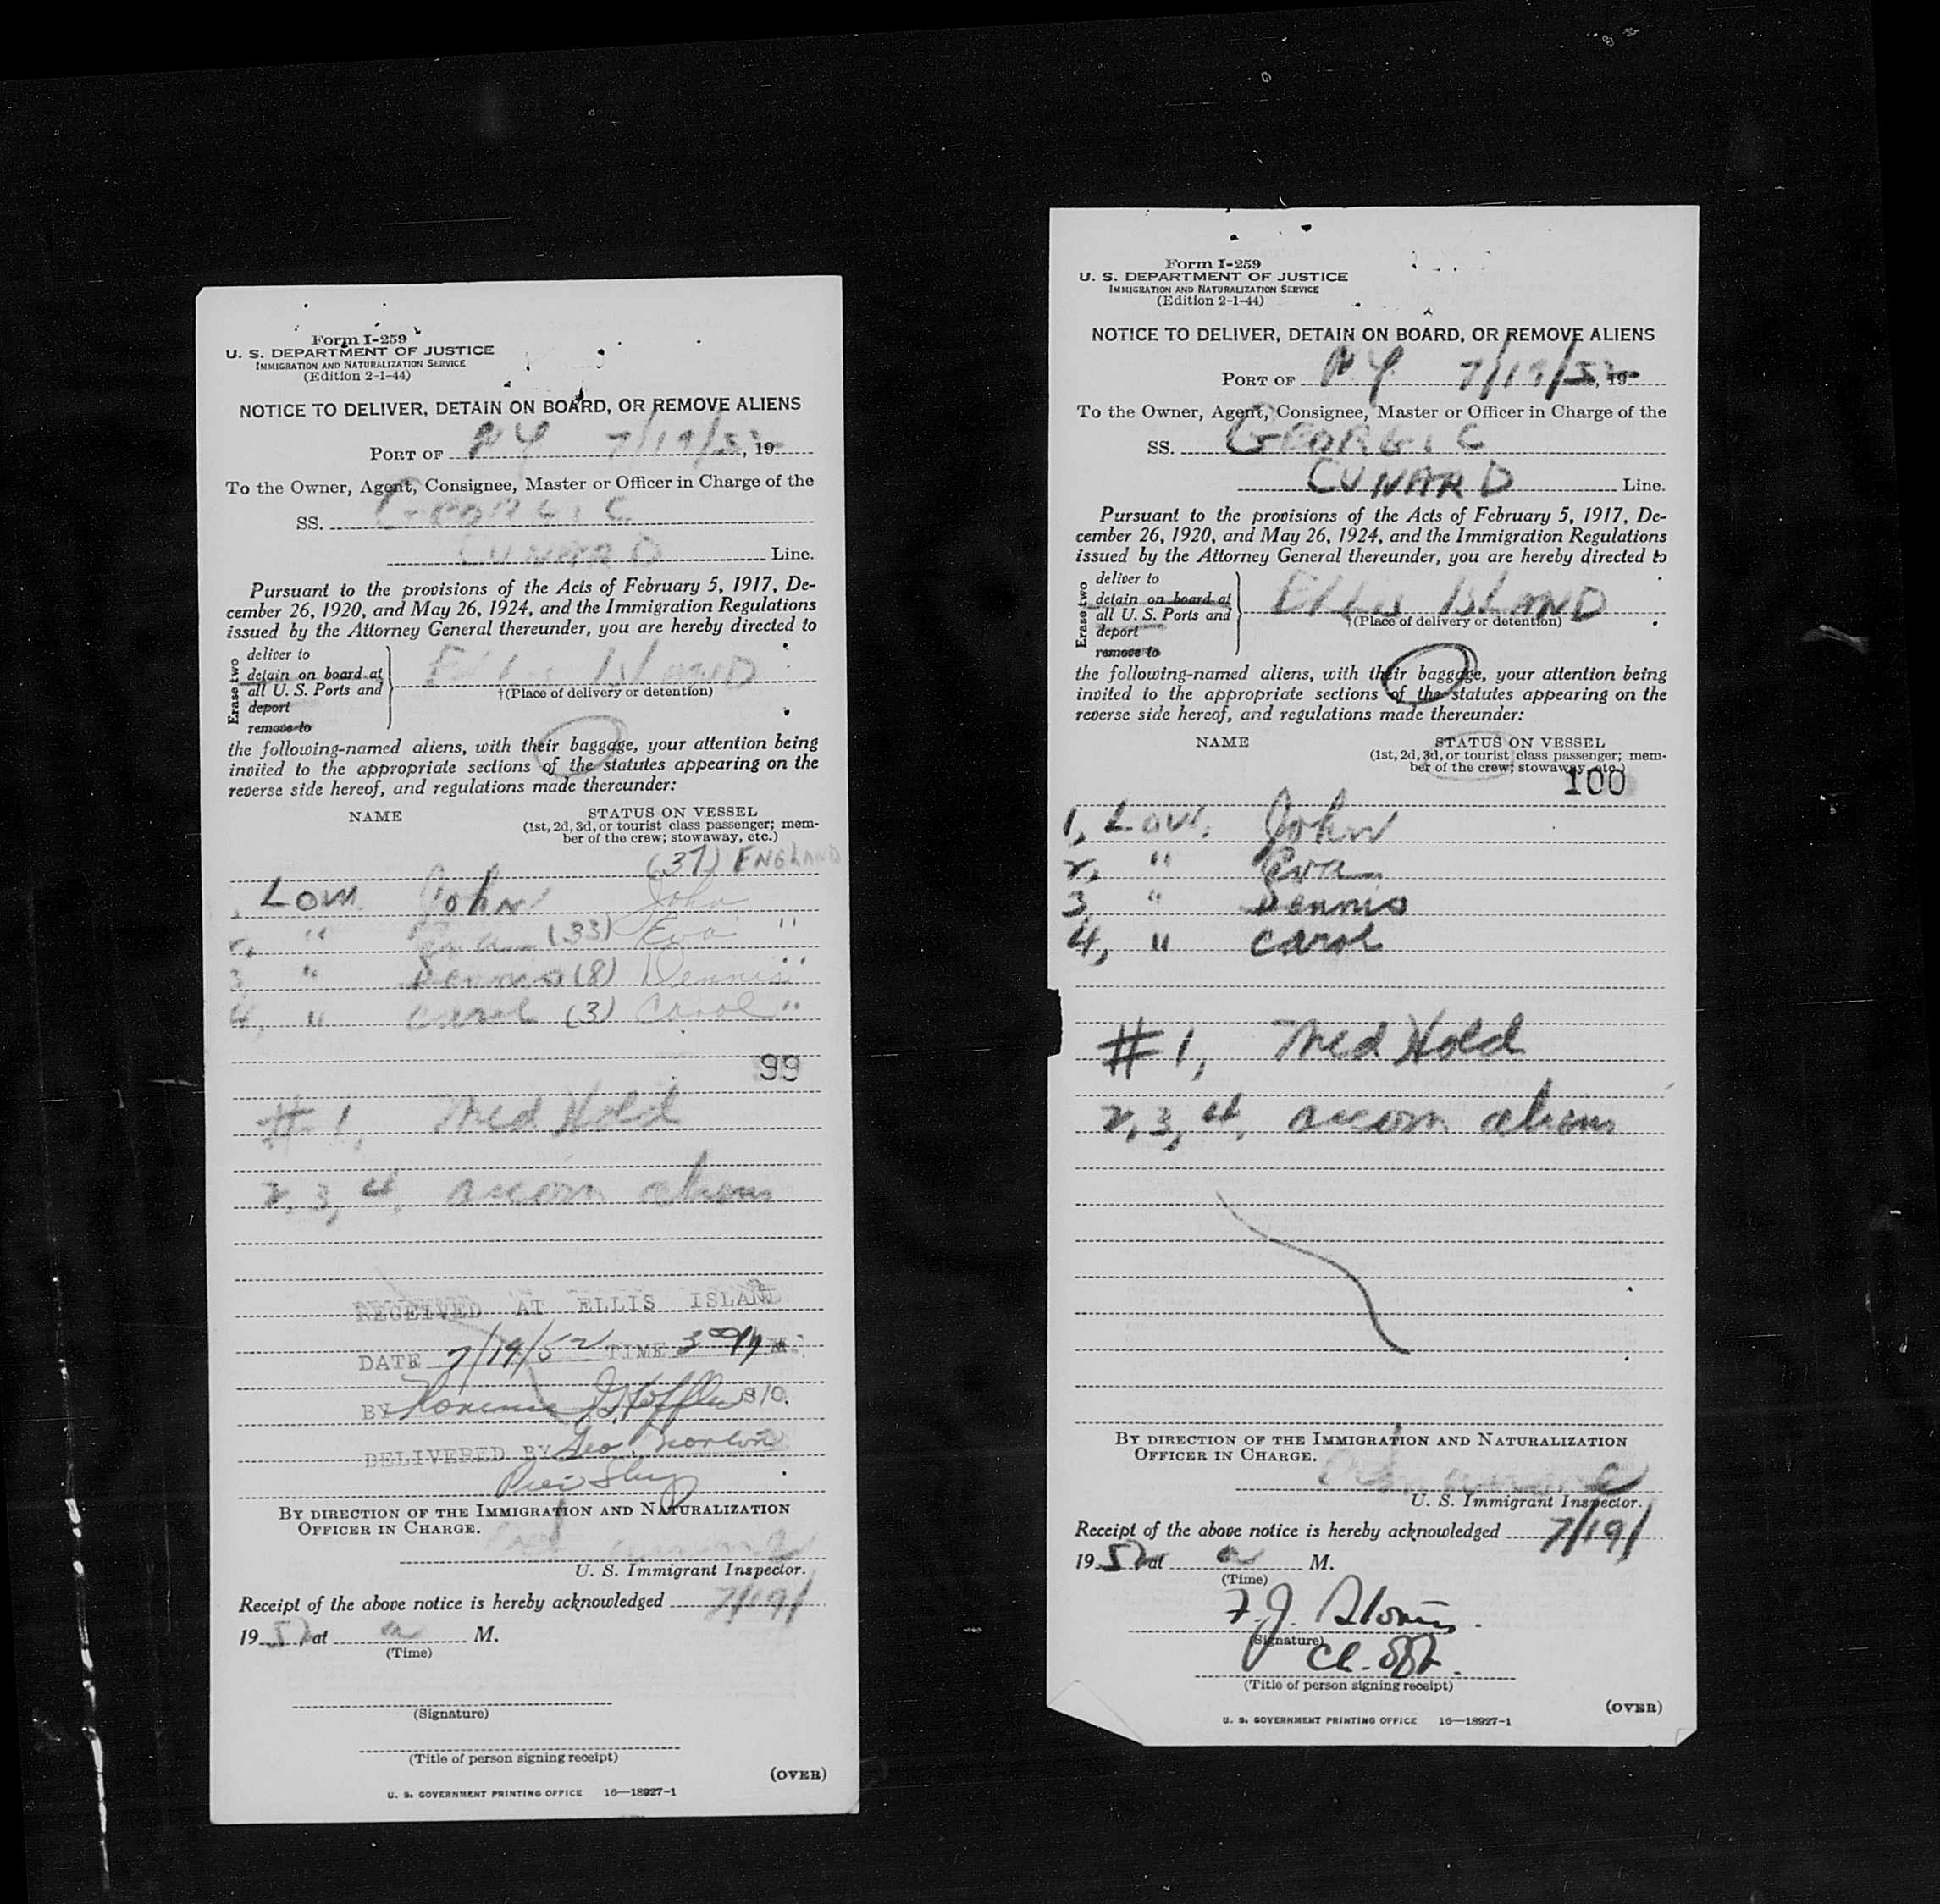 Form I-259
U. S. DEPARTMENT OF JUSTICE
IMMIGRATION AND NATURALIZATION SERVICE
(Edition 2-1-44)
NOTICE TO DELIVER, DETAIN ON BOARD, OR REMOVE ALIENS
PORT OF NY 7/19/52, 19
To the Owner, Agent, Consignee, Master or Officer in Charge of the
SS. GEORGIC
CUNARD Line.
Pursuant to the provisions of the Acts of February 5, 1917, De-
cember 26, 1920, and May 26, 1924, and the Immigration Regulations
issued by the Attorney General thereunder, you are hereby directed to
Erase two
deliver to
detain on board at
all U. S. Ports and
deport
remove to
ELLIS ISLAND
†(Place of delivery or detention)
the following-named aliens, with their baggage, your attention being
invited to the appropriate sections of the statutes appearing on the
reverse side hereof, and regulations made thereunder:
NAME STATUS ON VESSEL
(1st, 2d, 3d, or tourist class passenger; mem-
ber of the crew; stowaway, etc.)
(37) ENGLAND
LOW John John
2, " Eva (33) Eva "
3, " Dennis (8) Dennis "
4, " Carol (3) Carol "
99
#1, Med Hold
2, 3, 4, accom aliens
RECEIVED AT ELLIS ISLAND
DATE 7/19/52 TIME 3 00 P M.
BY S/O.
DELIVERED BY Geo. Norton
By direction of the Immigration and Naturalization
Officer in Charge.
U. S. Immigrant Inspector.
Receipt of the above notice is hereby acknowledged 7/19/
19 52 at a M.
(Time)
(Signature)
(Title of person signing receipt)
(OVER)
U. S. GOVERNMENT PRINTING OFFICE 16—18927-1
Form I-259
U. S. DEPARTMENT OF JUSTICE
IMMIGRATION AND NATURALIZATION SERVICE
(Edition 2-1-44)
NOTICE TO DELIVER, DETAIN ON BOARD, OR REMOVE ALIENS
PORT OF NY 7/19/52, 19
To the Owner, Agent, Consignee, Master or Officer in Charge of the
SS. GEORGIC
CUNARD Line.
Pursuant to the provisions of the Acts of February 5, 1917, De-
cember 26, 1920, and May 26, 1924, and the Immigration Regulations
issued by the Attorney General thereunder, you are hereby directed to
Erase two
deliver to
detain on board at
all U. S. Ports and
deport
remove to
ELLIS ISLAND
†(Place of delivery or detention)
the following-named aliens, with their baggage, your attention being
invited to the appropriate sections of the statutes appearing on the
reverse side hereof, and regulations made thereunder:
NAME STATUS ON VESSEL
(1st, 2d, 3d, or tourist class passenger; mem-
ber of the crew; stowaway, etc.)
100
1, Low, John
2, " Eva
3, " Dennis
4, " Carol
#1, Med Hold
2, 3, 4, accom aliens
By direction of the Immigration and Naturalization
Officer in Charge.
U. S. Immigrant Inspector.
Receipt of the above notice is hereby acknowledged 7/19/
19 52 at a M.
(Time)
F. J.
(Signature)
(Title of person signing receipt)
(OVER)
U. S. GOVERNMENT PRINTING OFFICE 16—18927-1